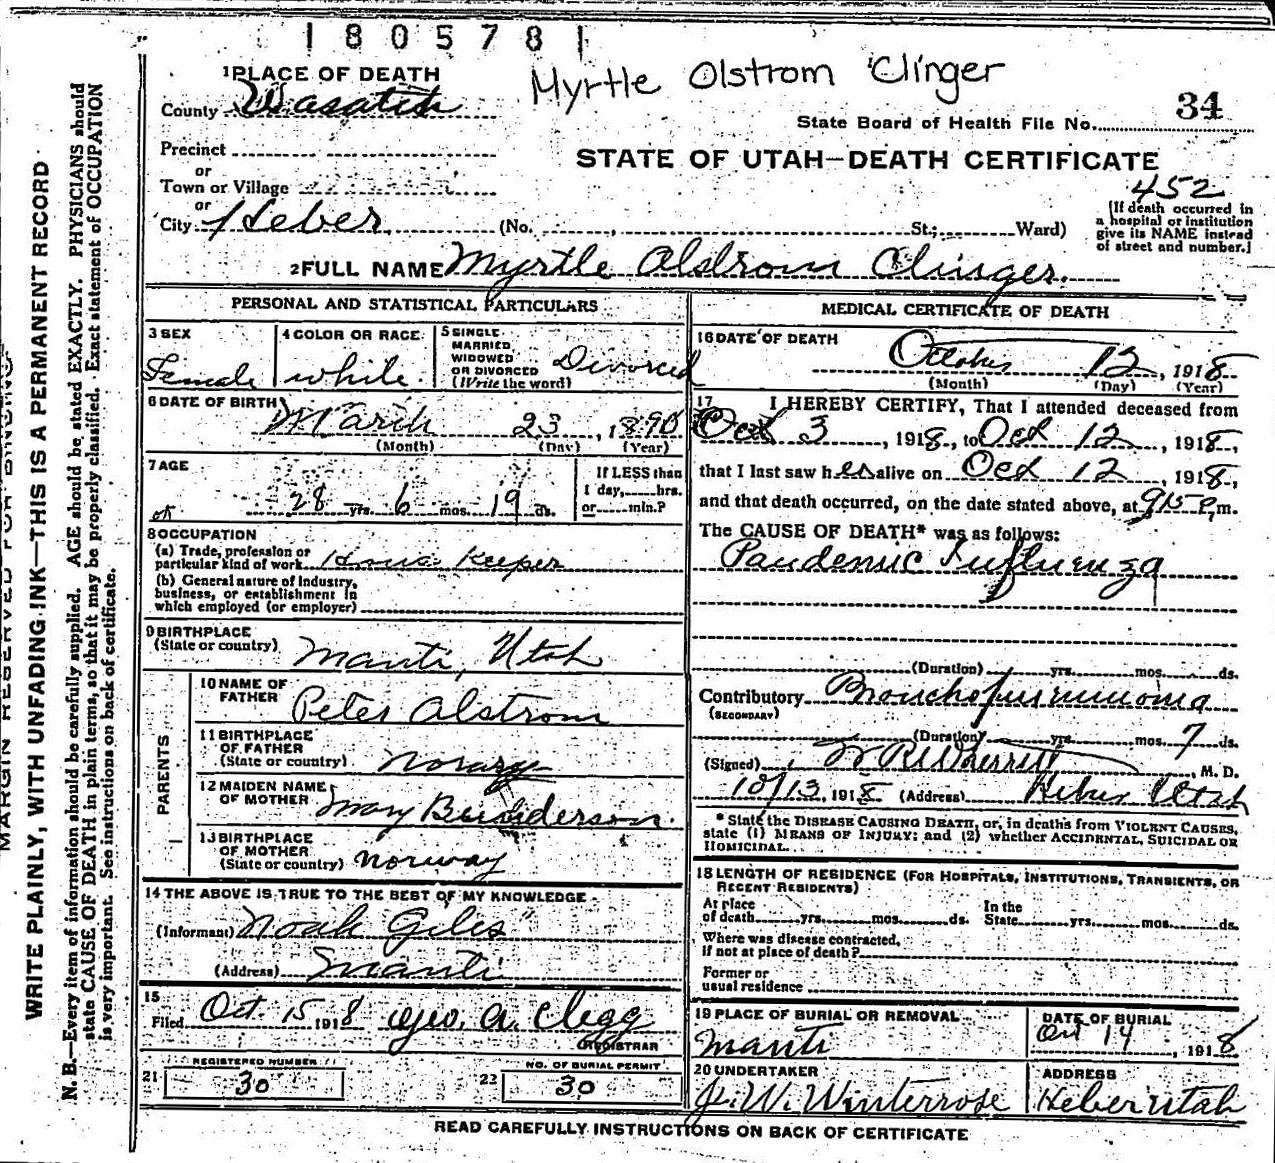 1 8 0 5 7 8
Myrtle Olstrom Clinger
1 PLACE OF DEATH
County Wasatch
34
State Board of Health File No.
Precinct
or
Town or Village
or
City Heber (No. , St.; Ward)
STATE OF UTAH—DEATH CERTIFICATE
452
[If death occurred in
a hospital or institution
give its NAME instead
of street and number.]
2 FULL NAME Myrtle Alstrom Clinger.
PERSONAL AND STATISTICAL PARTICULARS
3 SEX
Female
4 COLOR OR RACE
white
5 SINGLE
MARRIED
WIDOWED
OR DIVORCED
(Write the word)
Divorced
6 DATE OF BIRTH
March 23, 1890
(Month) (Day) (Year)
7 AGE
28 yrs. 6 mos. 19 ds.
If LESS than
1 day, hrs.
or min.?
8 OCCUPATION
(a) Trade, profession or
particular kind of work House Keeper
(b) General nature of industry,
business, or establishment in
which employed (or employer)
9 BIRTHPLACE
(State or country) Manti, Utah
PARENTS
10 NAME OF
FATHER Peter Alstrom
11 BIRTHPLACE
OF FATHER
(State or country) Norway
12 MAIDEN NAME
OF MOTHER Mary
13 BIRTHPLACE
OF MOTHER
(State or country) Norway
14 THE ABOVE IS TRUE TO THE BEST OF MY KNOWLEDGE
(Informant) Noah Giles
(Address) Manti
15
Filed Oct. 15 1918 Geo. A. Clegg
REGISTRAR
REGISTERED NUMBER
21 30
NO. OF BURIAL PERMIT
22 30
MEDICAL CERTIFICATE OF DEATH
16 DATE OF DEATH
October 12, 1918
(Month) (Day) (Year)
17 I HEREBY CERTIFY, That I attended deceased from
Oct 3, 1918, to Oct 12, 1918,
that I last saw her alive on Oct 12, 1918,
and that death occurred, on the date stated above, at 915 P.m.
The CAUSE OF DEATH* was as follows:
Pandemic Influenza
(Duration) yrs. mos. ds.
Contributory Bronchopneumonia
(SECONDARY)
(Duration) yrs. mos. 7 ds.
(Signed) Wherritt, M. D.
10/13, 1918 (Address) Heber Utah
* State the DISEASE CAUSING DEATH, or, in deaths from VIOLENT CAUSES,
state (1) MEANS OF INJURY; and (2) whether ACCIDENTAL, SUICIDAL OR
HOMICIDAL.
18 LENGTH OF RESIDENCE (FOR HOSPITALS, INSTITUTIONS, TRANSIENTS, OR
RECENT RESIDENTS)
At place
of death yrs. mos. ds.
In the
State yrs. mos. ds.
Where was disease contracted,
if not at place of death?
Former or
usual residence
19 PLACE OF BURIAL OR REMOVAL
Manti
DATE OF BURIAL
Oct 14, 1918
20 UNDERTAKER
J. W. Winterrose
ADDRESS
Heber Utah
READ CAREFULLY INSTRUCTIONS ON BACK OF CERTIFICATE
MARGIN RESERVED FOR BINDING
WRITE PLAINLY, WITH UNFADING INK—THIS IS A PERMANENT RECORD
N. B.—Every item of information should be carefully supplied. AGE should be stated EXACTLY. PHYSICIANS should
state CAUSE OF DEATH in plain terms, so that it may be properly classified. Exact statement of OCCUPATION
is very important. See instructions on back of certificate.